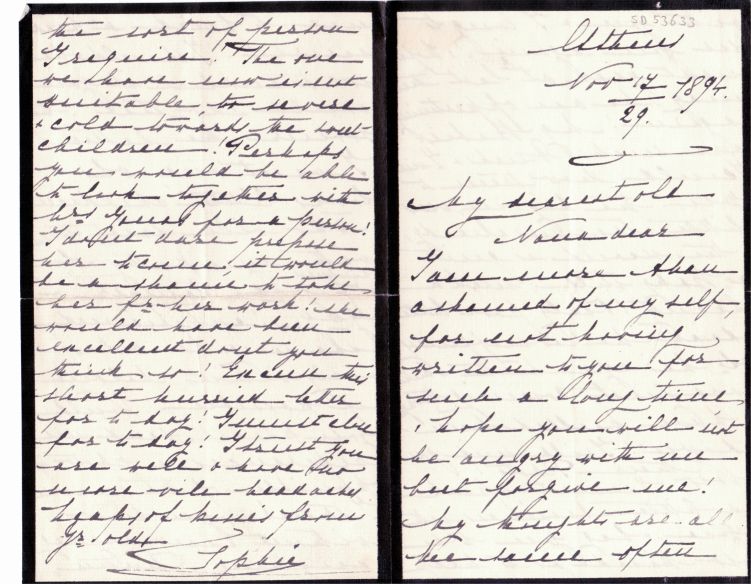 SD 53633
Athens
Nov 17/29. 1894.
My dearest old
Nona dear
I am more than
ashamed of my self,
for not having
written to you for
such a long time,
I hope you will not
be angry with me
but forgive me!
My thoughts are all
the same often
the sort of person
I require! The one
we have now is not
suitable, too severe
& cold towards the sweet
children! Perhaps
you would be able
to look together with
Mrs for a person!
I do not dare propose
her to come, it would
be a shame to take
her fr. her work! She
would have been
excellent dont you
think so! Excuse this
short hurried letter
for to day! I must close
for to day! I trust you
are well & have no
more vile headaches
heaps of kisses from
yr. old
Sophie